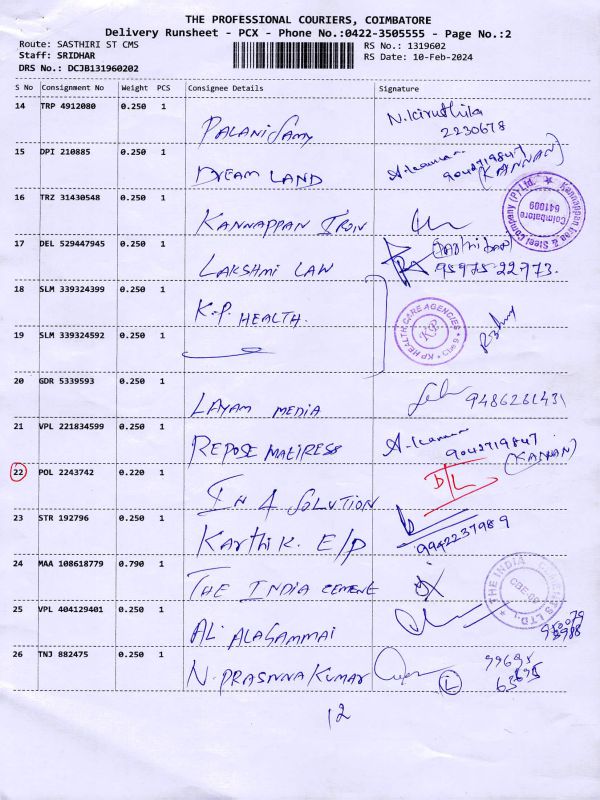 THE PROFESSIONAL COURIERS, COIMBATORE
Delivery Runsheet - PCX - Phone No.:0422-3505555 - Page No.:2
Route: SASTHIRI ST CMS
RS No.: 1319602
Staff: SRIDHAR
RS Date: 10-Feb-2024
DRS No.: DCJB131960202
S No Consignment No Weight PCS Consignee Details Signature
14 TRP 4912080 0.250 1 PALANISAMY N.Kiruthika
2230678
15 DPI 210885 0.250 1 DREAM LAND
9042719847
(KANNAN)
16 TRZ 31430548 0.250 1 KANNAPPAN IRON
Kannappan Iron & Steel Company (P) Ltd. Coimbatore 641009
17 DEL 529447945 0.250 1 LAKSHMI LAW
9597522773.
18 SLM 339324399 0.250 1 K.P. HEALTH.
KP HEALTH CARE AGENCIES KP
19 SLM 339324592 0.250 1
20 GDR 5339593 0.250 1 LAYAM MEDIA 9486261431
21 VPL 221834599 0.250 1 REPOSE MATIRESS
9042719847
(KANNAN)
22 POL 2243742 0.220 1 IN 4 SOLUTION D/L
23 STR 192796 0.250 1 Karthik. E/P
9942237989
24 MAA 108618779 0.790 1 THE INDIA CEMENT
THE INDIA CEMENTS LTD. CBE-09
25 VPL 404129401 0.250 1 AL. ALAGAMMAI
26 TNJ 882475 0.250 1 N. PRASNNA KUMAR
99695
L
12